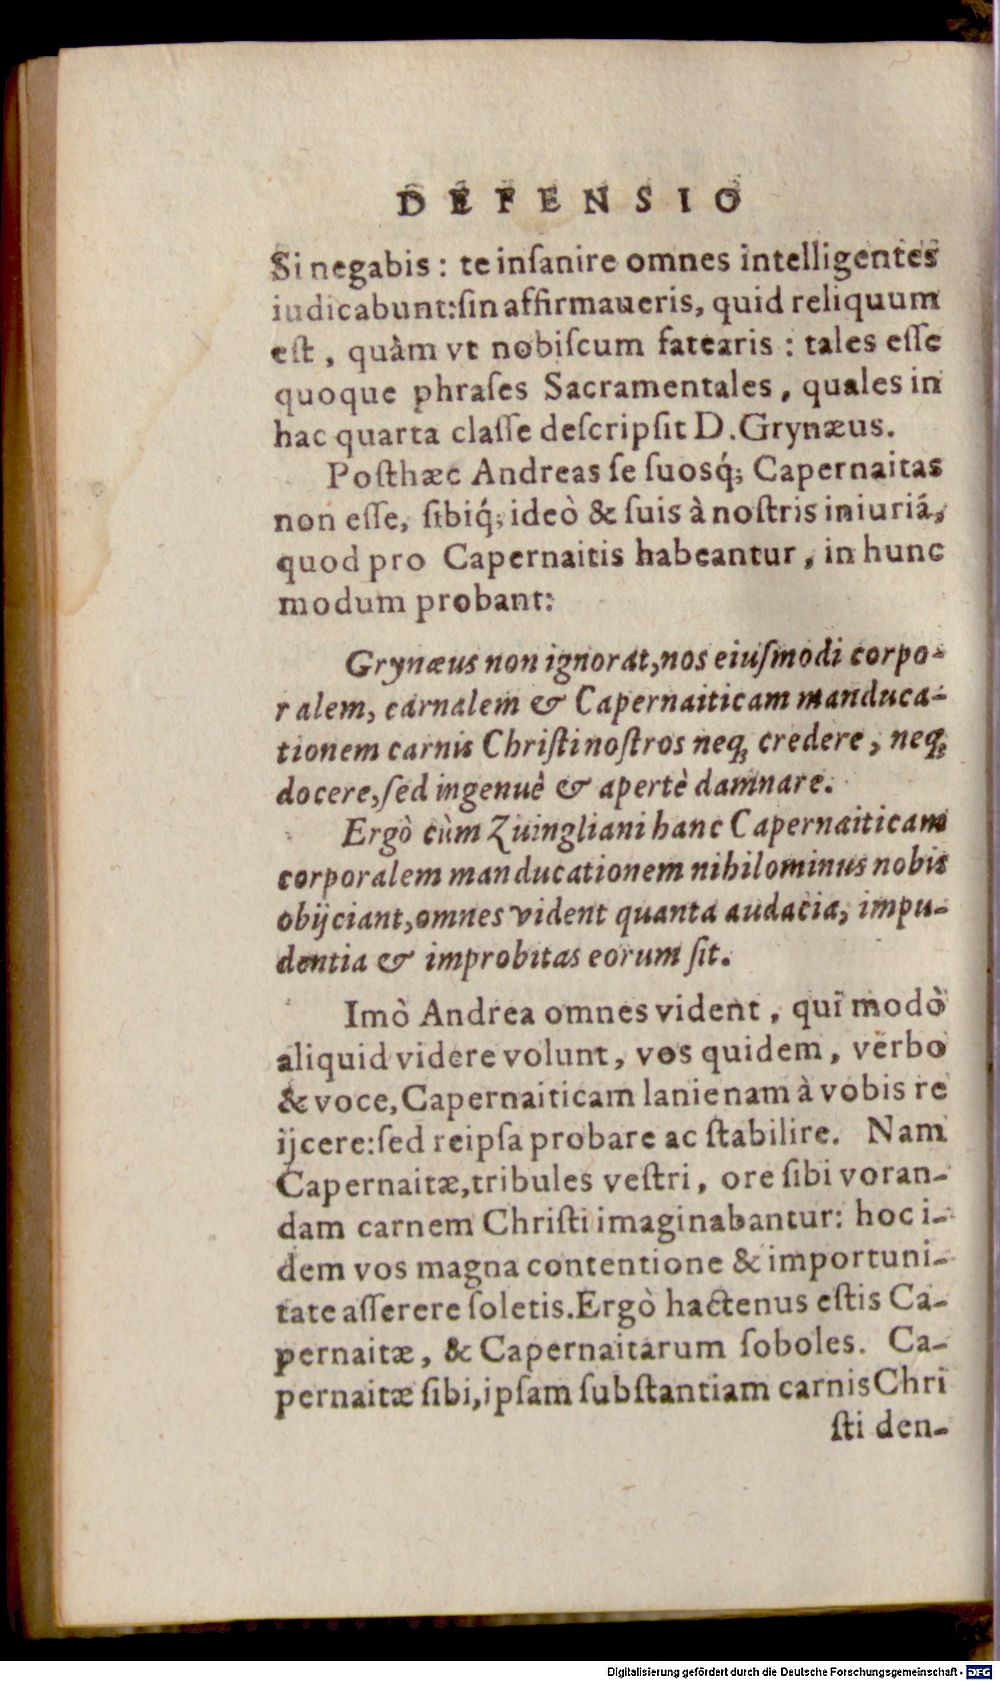 DEFENSIO
Si negabis : te inſanire omnes intelligentes
iudicabunt:ſin affirmaueris, quid reliquum
eſt , quàm vt nobiſcum fatearis : tales eſſe
quoque phraſes Sacramentales , quales in
hac quarta claſſe deſcripſit D.Grynæus.
Poſthæc Andreas ſe ſuosq́; Capernaitas
non eſſe, ſibiq́; ideò & ſuis à noſtris iniuriá,
quod pro Capernaitis habeantur , in hunc
modum probant:
Grynæus non ignorat,nos eiuſmodi corpo-
ralem, carnalem & Capernaiticam manduca-
tionem carnis Chriſti noſtros neq; credere , neq;
docere,ſed ingenuè & apertè damnare.
Ergò cùm Zuingliani hanc Capernaiticam
corporalem manducationem nihilominus nobis
obijciant,omnes vident quanta audacia, impu-
dentia & improbitas eorum ſit.
Imò Andrea omnes vident , qui modò
aliquid videre volunt, vos quidem, verbo
& voce,Capernaiticam lanienam à vobis re
ijcere:ſed reipſa probare ac ſtabilire. Nam
Capernaitæ,tribules veſtri, ore ſibi voran-
dam carnem Chriſti imaginabantur: hoc i-
dem vos magna contentione & importuni-
tate aſſerere ſoletis.Ergò hactenus eſtis Ca-
pernaitæ, & Capernaitarum ſoboles. Ca-
pernaitæ ſibi,ipſam ſubſtantiam carnis Chri
ſti den-
Digitalisierung gefördert durch die Deutsche Forschungsgemeinschaft - DFG